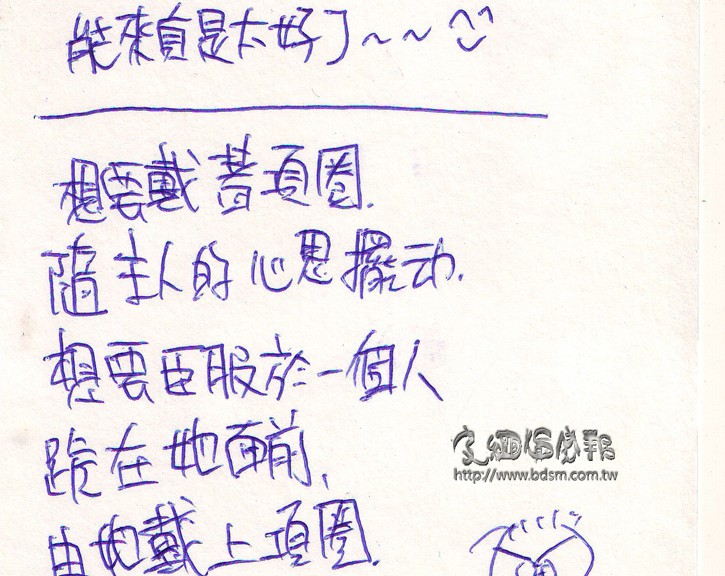 能來真是太好了～～^_^
想要戴著項圈.
隨主人的心思擺动.
想要臣服於一個人
跪在她面前,
http://www.bdsm.com.tw
由她戴上項圈.